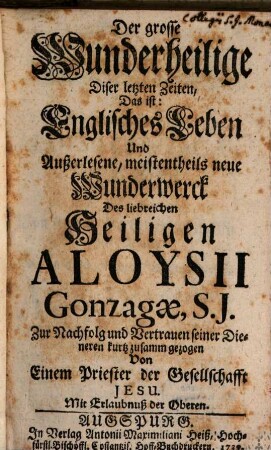 Collegij S.J. Mona
Der grosse
Wunderheilige
Diser letzten Zeiten,
Das ist:
Englisches Leben
Und
Außerlesene, meistentheils neue
Wunderwerck
Des liebreichen
Heiligen
ALOYSII
Gonzagæ, S.J.
Zur Nachfolg und Vertrauen seiner Die-
neren kurtz zusamm gezogen
Von
Einem Priester der Gesellschafft
JESU.
Mit Erlaubnuß der Oberen.
AUGSPURG,
In Verlag Antonii Maximiliani Heiß, Hoch-
fürstl. Bischöffl. Costantzis. Hoff-Buchdruckern,